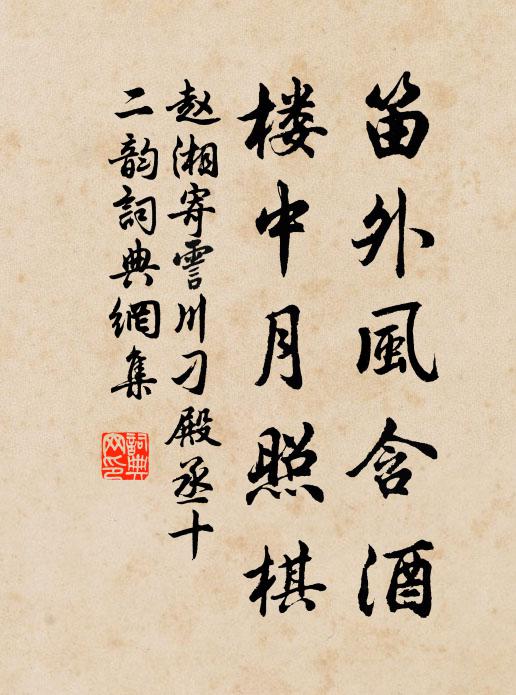 笛外風含酒
楼中月照棋
赵湘寄雪川刁殿丞十
二韵詞典網集
詞典网印